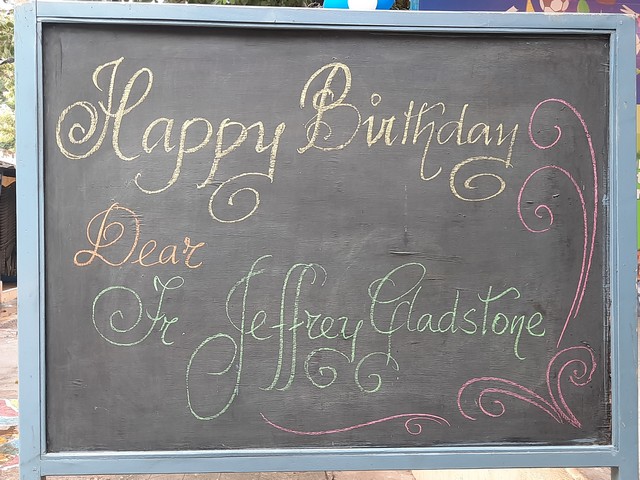 Happy Birthday
Dear
Fr. Jeffrey Gladstone